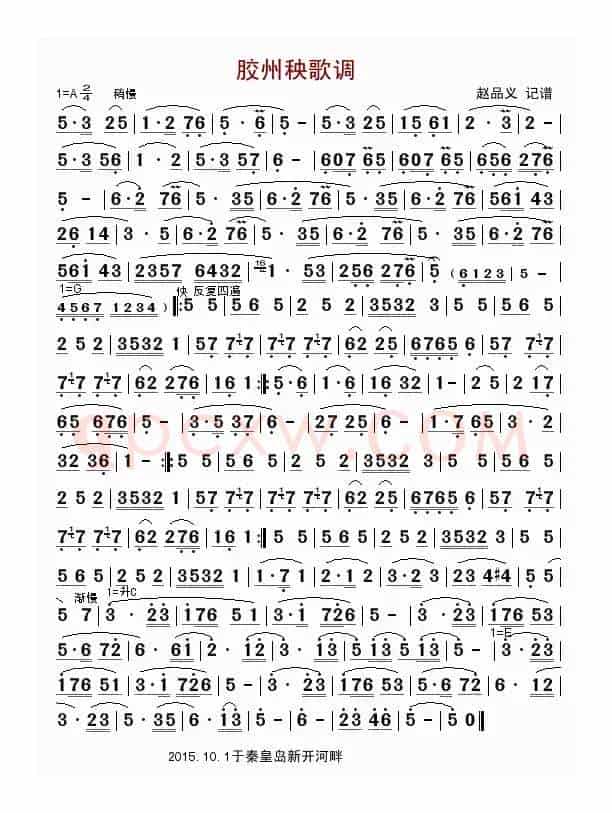 胶州秧歌调
1=A 2/4 稍慢 赵品义 记谱
5·3 25 | 1·2 76 | 5·6 | 5 - | 5·3 25 | 15 61 | 2·3 | 2 - |
5·3 56 | 1·2 | 5·3 57 | 6 - | 607 65 | 607 65 | 656 276 |
5 - | 6·2 76 | 5·35 | 6·2 76 | 5·35 | 6·2 76 | 561 43 |
26 14 | 3·5 | 6·2 76 | 5·35 | 6·2 76 | 5·35 | 6·2 76 |
561 43 | 2357 6432 | 16 1·53 | 256 276 | 5 (6123 | 5 -
1=G 快 反复四遍
4567 1234) |: 5 5 | 56 5 | 2 5 2 | 3532 3 | 5 5 | 56 5 |
2 5 2 | 3532 1 | 57 717 | 57 717 | 62 25 | 6765 6 | 57 717 |
717 717 | 62 276 | 16 1 :|: 5·6 | 1·6 | 16 32 | 1- | 2 5 | 2 17 |
65 676 | 5 - | 3·5 37 | 6·2 | 6 - | 1·7 65 | 3·2 |
32 36 | 1 - :|: 5 5 | 56 5 | 2 5 2 | 3532 3 | 5 5 | 56 5 |
2 5 2 | 3532 1 | 57 717 | 57 717 | 62 25 | 6765 6 | 57 717 |
717 717 | 62 276 | 16 1 :| 5 5 | 565 | 2 5 2 | 3532 3 | 5 5 |
56 5 | 2 5 2 | 3532 1 | 1·7 1 | 2·1 2 | 3·2 3 | 23 4#4 | 5 5
渐慢 1=升C
5 7 | 3·23 | 176 5 1 | 3·1 726 | 5 - | 3·23 | 176 53 |
1=E
5·6 72 | 6·61 | 2·12 | 3·23 | 5 13 5 13 | 5 13 | 5·23 |
176 51 | 3·1 726 | 5 - | 3·23 | 176 53 | 5·6 72 | 6·12 |
3·23 | 2·35 | 6·13 | 5 - | 23 46 | 5 - | 5 0 ‖
2015.10.1于秦皇岛新开河畔
qpcxw.com